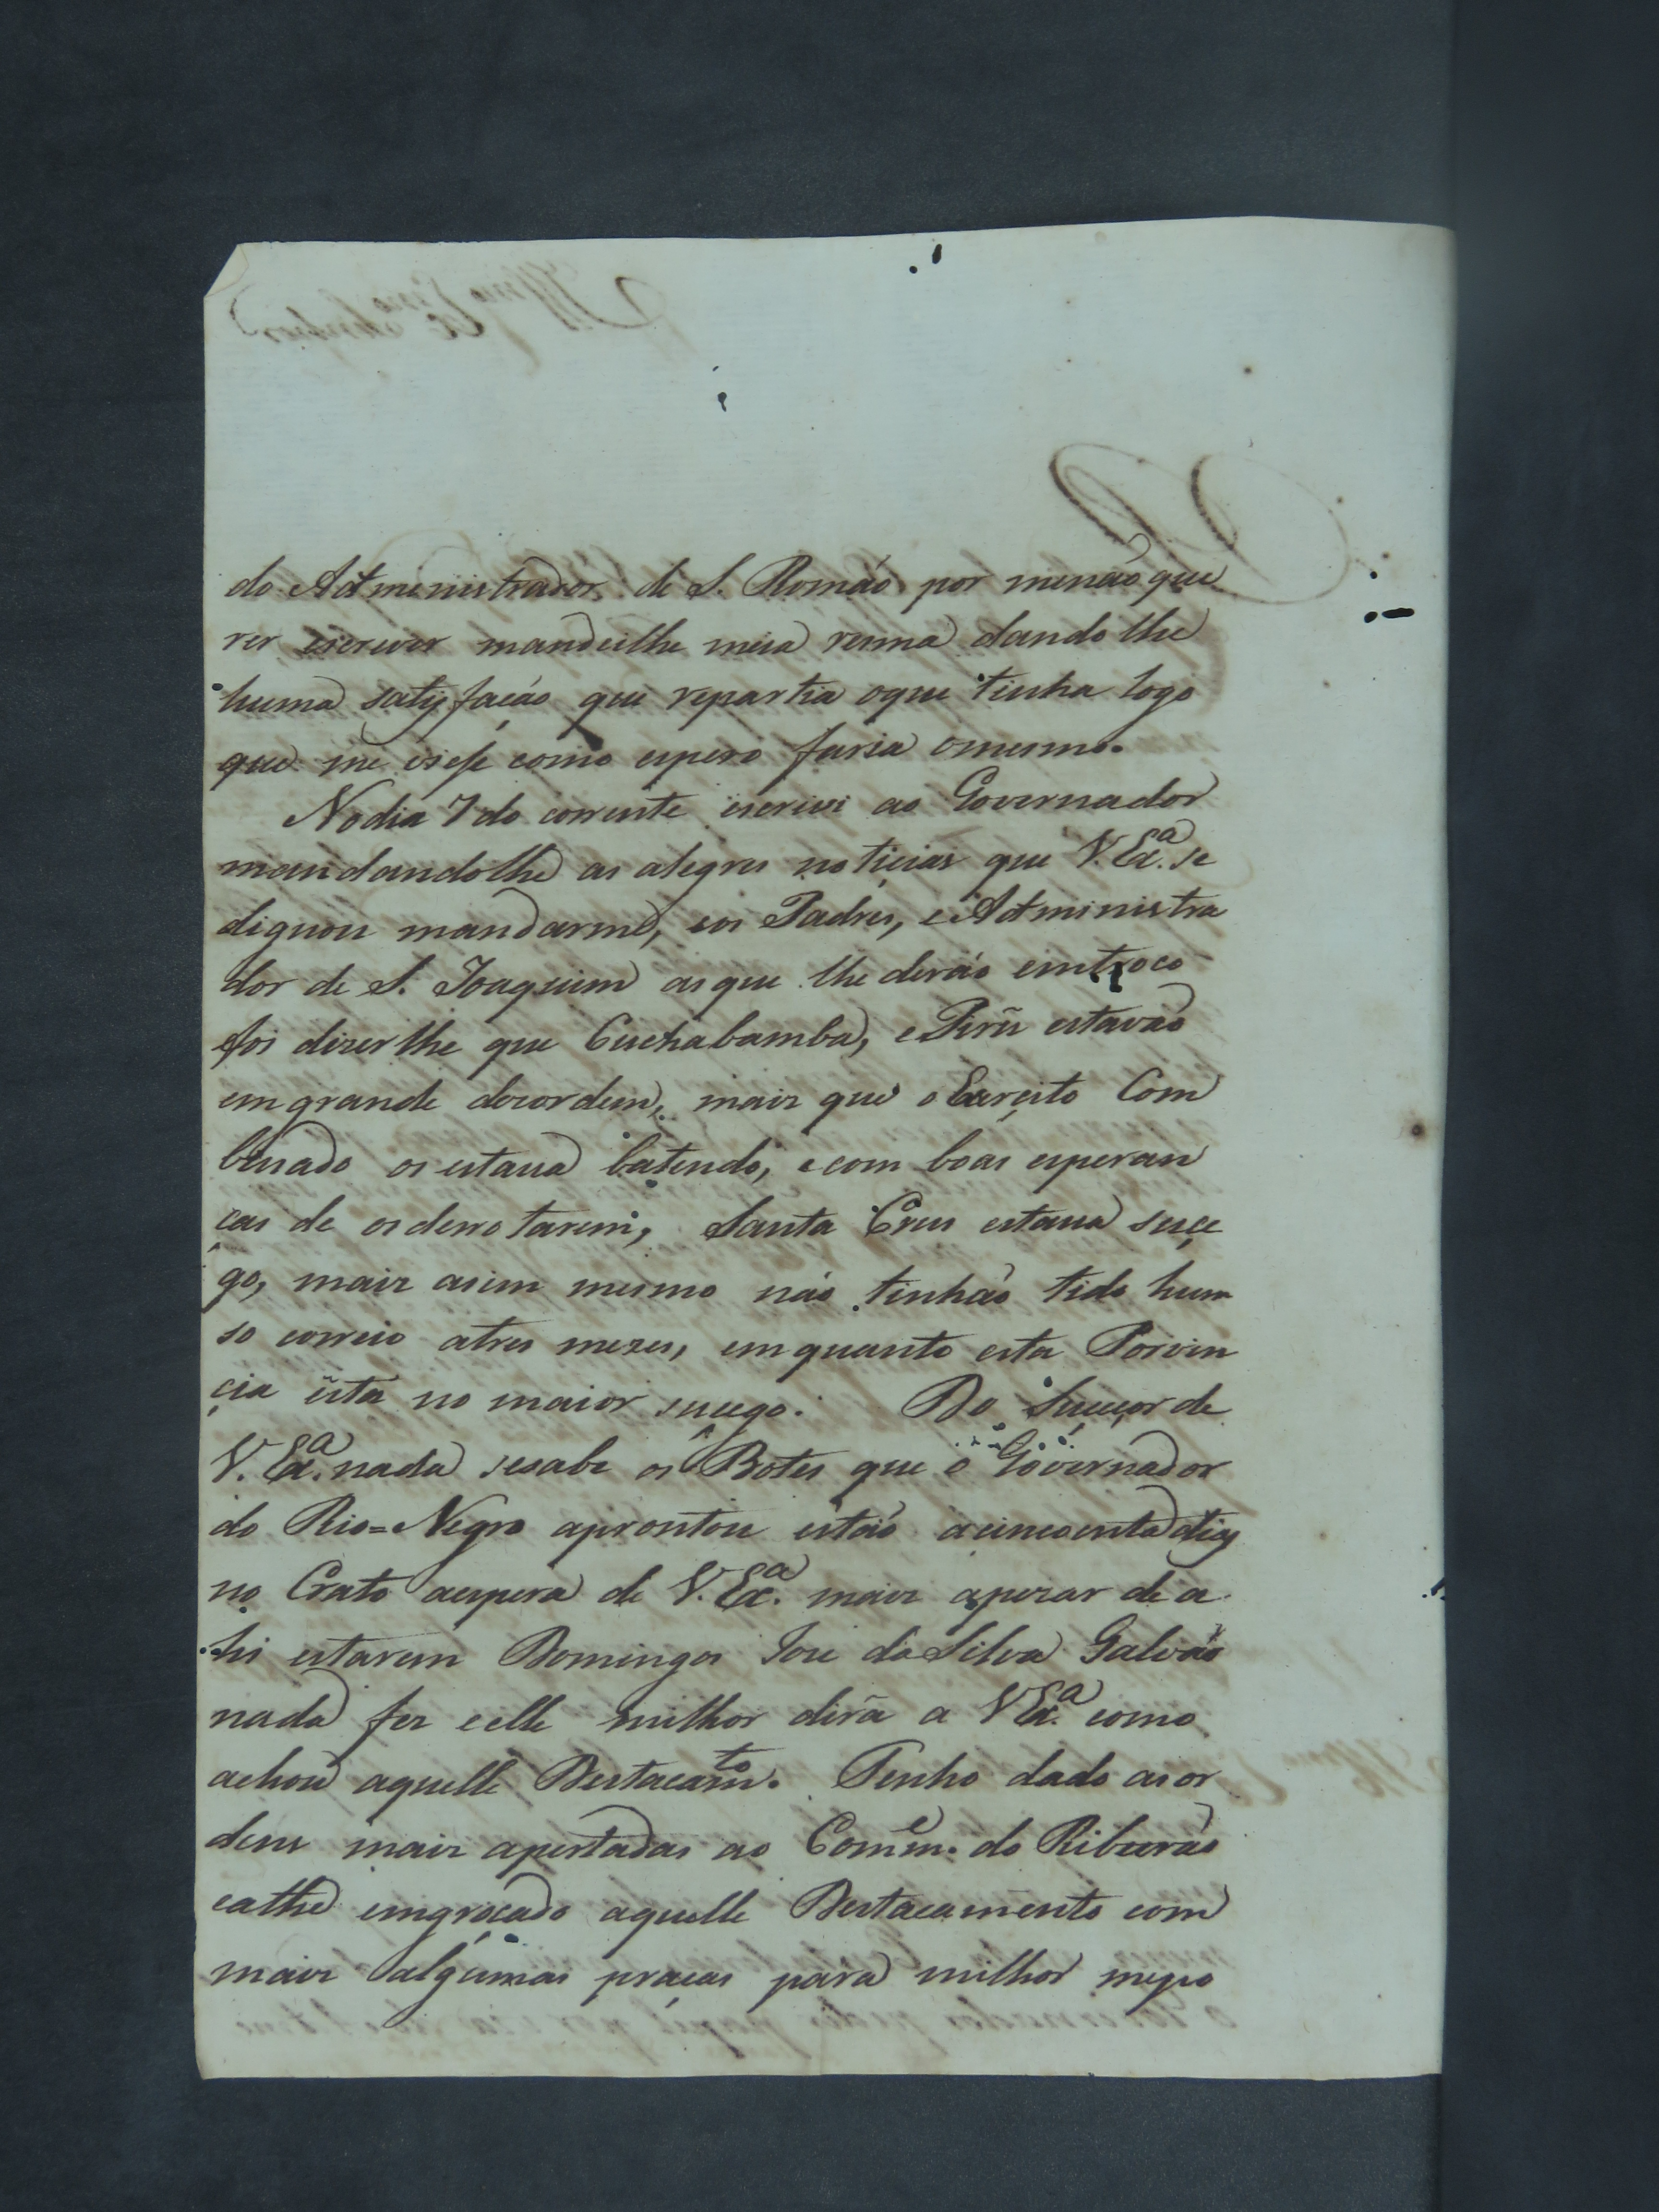 do Admenistrador de S. Romão por menão que
rer escrever mandeilhe meia resma dando lhe
huma satisfação que repartia oque tinha logo
que me viesse como espero faria omesmo.
No dia 7 do corrente escrivi ao Governador
mandandolhe as alegres noticias que V. Exª. se
dignou mandarme, eos Padres, e Administra
dor de S. Joaquim as que lhe derão emtroco
foi dizer lhe que Cuchabamba, e Pirũ estavão
em grande dezordem, maiz que o Exerçito Com
binado os estava batendo, e com boas esperan
ças de os derrotarem, Santa Crus estava suçe
go, maiz asim mesmo não tinhão tido hum
so correio atres mezes, emquanto esta Porvin
çia esta no maior sucego. Do Suceçor de
V. Exª. nada sesabe os Botes que o Governador
do Rio=Negro aprontou estão acincoenta dias
no Crato aespera de V. Exª. maiz apezar de a
hi estarem Domingos Jose da Silva Galvão
nada fez e elle milhor dirã a V Exª. como
achou aquelle Destacamto. Tenho dado as or
dens maiz apertadas ao Comme. do Ribeirão
eathe emgroçado aquelle Destacamento com
maiz algumas praças para milhor